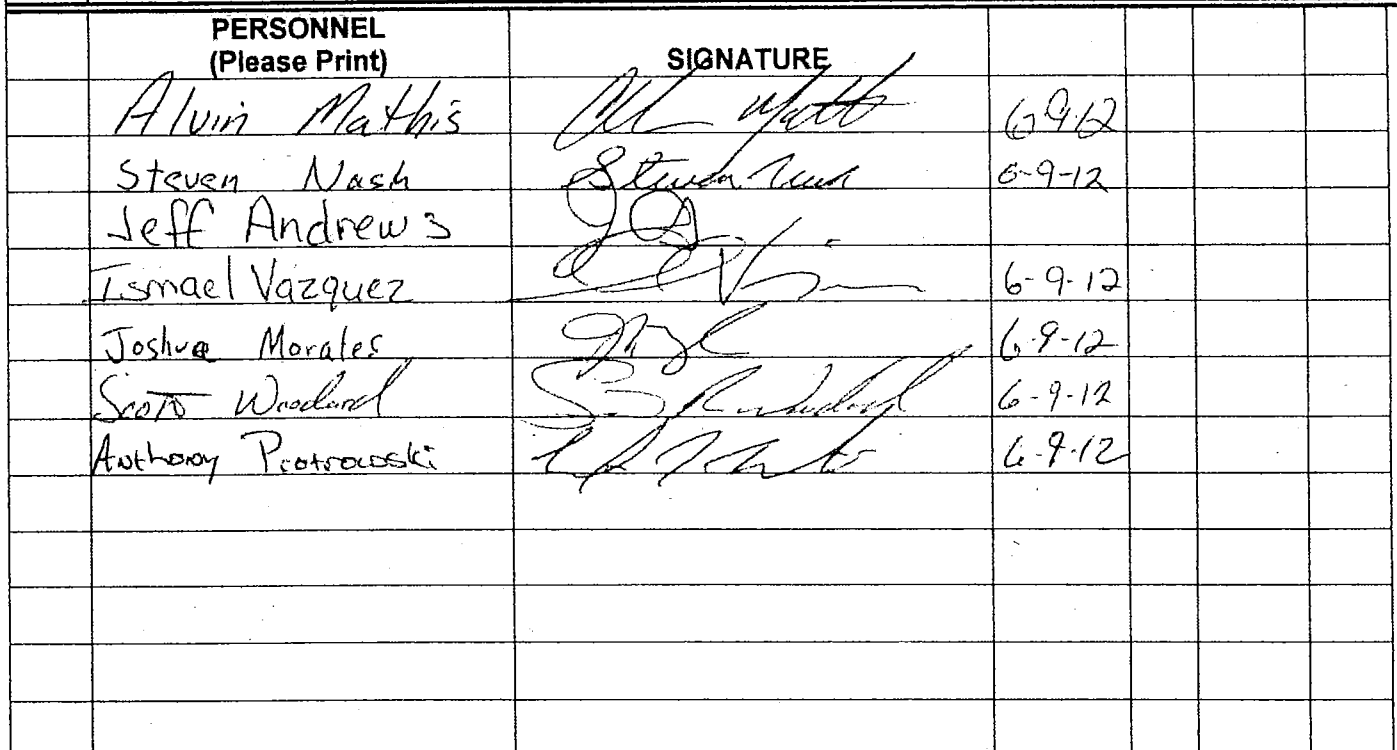 PERSONNEL
(Please Print) SIGNATURE
Alvin Mathis 6-9-12
Steven Nash Steven Nash 6-9-12
Jeff Andrews JA
Ismael Vazquez 6-9-12
Joshua Morales 6-9-12
Scott Woodard 6-9-12
Anthony Piotrowski 6-9-12